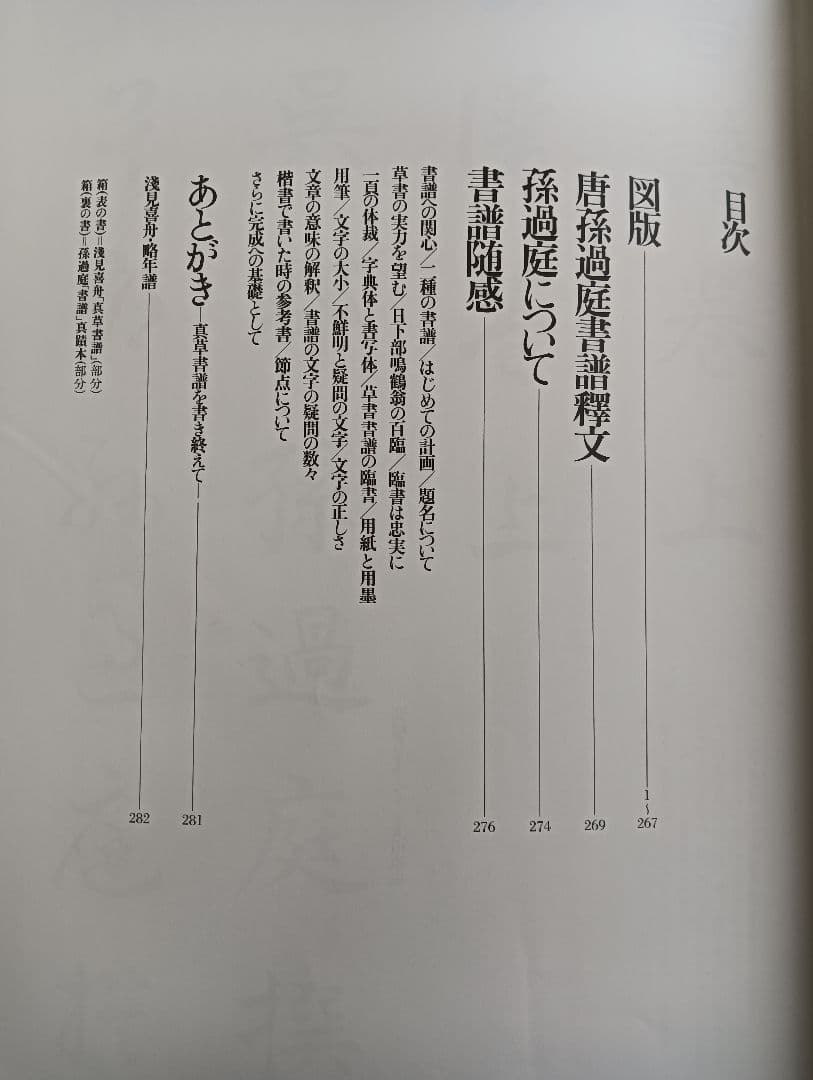 目次
図版 1〜267
唐孫過庭書譜釋文 269
孫過庭について 274
書譜随感 276
書譜への関心／二種の書譜／はじめての計画／題名について
草書の実力を望む／日下部鳴鶴翁の百臨／臨書は忠実に
一頁の体裁／字典体と書写体／草書書譜の臨書／用紙と用墨
用筆／文字の大小／不鮮明と疑問の文字／文字の正しさ
文章の意味の解釈／書譜の文字の疑問の数々
楷書で書いた時の参考書／節点について
さらに完成への基礎として
あとがき—真草書譜を書き終えて— 281
淺見喜舟・略年譜 282
箱(表の書)＝淺見喜舟「真草書譜」(部分)
箱(裏の書)＝孫過庭「書譜」真蹟本(部分)